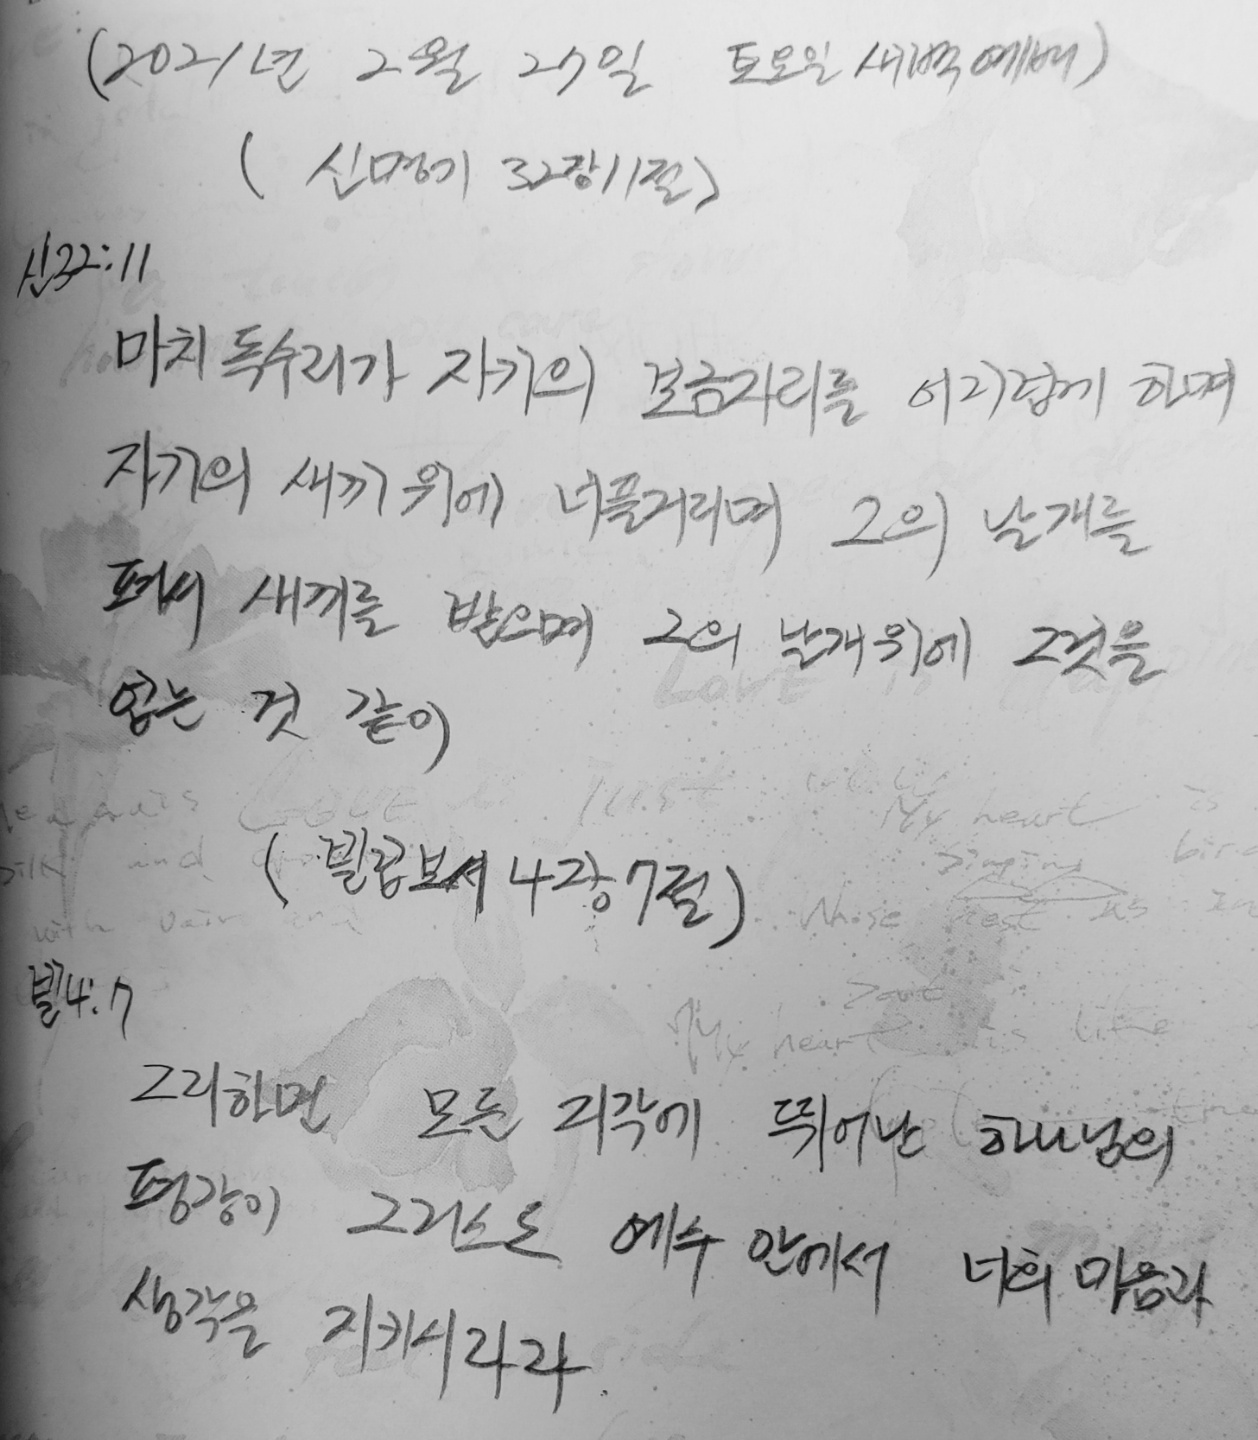 (2021년 2월 27일 토요일 새벽예배)
( 신명기 32장11절)
신32:11
마치 독수리가 자기의 보금자리를 어지럽게 하며
자기의 새끼 위에 너풀거리며 그의 날개를
펴서 새끼를 받으며 그의 날개위에 그것을
업는 것 같이
Love
Love is just
My heart is
and
singing bird
(빌립보서 4장7절)
with
Whose nest
빌4:7
My heart is like
그리하면 모든 지각에 뛰어난 하나님의
평강이 그리스도 예수 안에서 너희 마음과
생각을 지키시리라